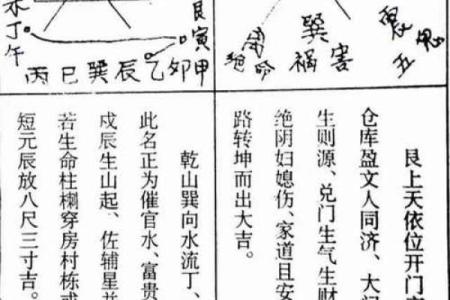 艮
寅
丁
午
丙巳巽辰乙卯甲
巽
祸害
绝
五
鬼
艮上天依位开门
仓库盈文人同济、大
生则源、兑门生气生财
绝阴妇媳伤、家道且安
路转坤而出大吉。
乾山巽向水流丁、
此名正为催官水、富贵
戍辰生山起、佐辅星并
若生命柱穿房村栋或
短元辰放八尺三寸吉。